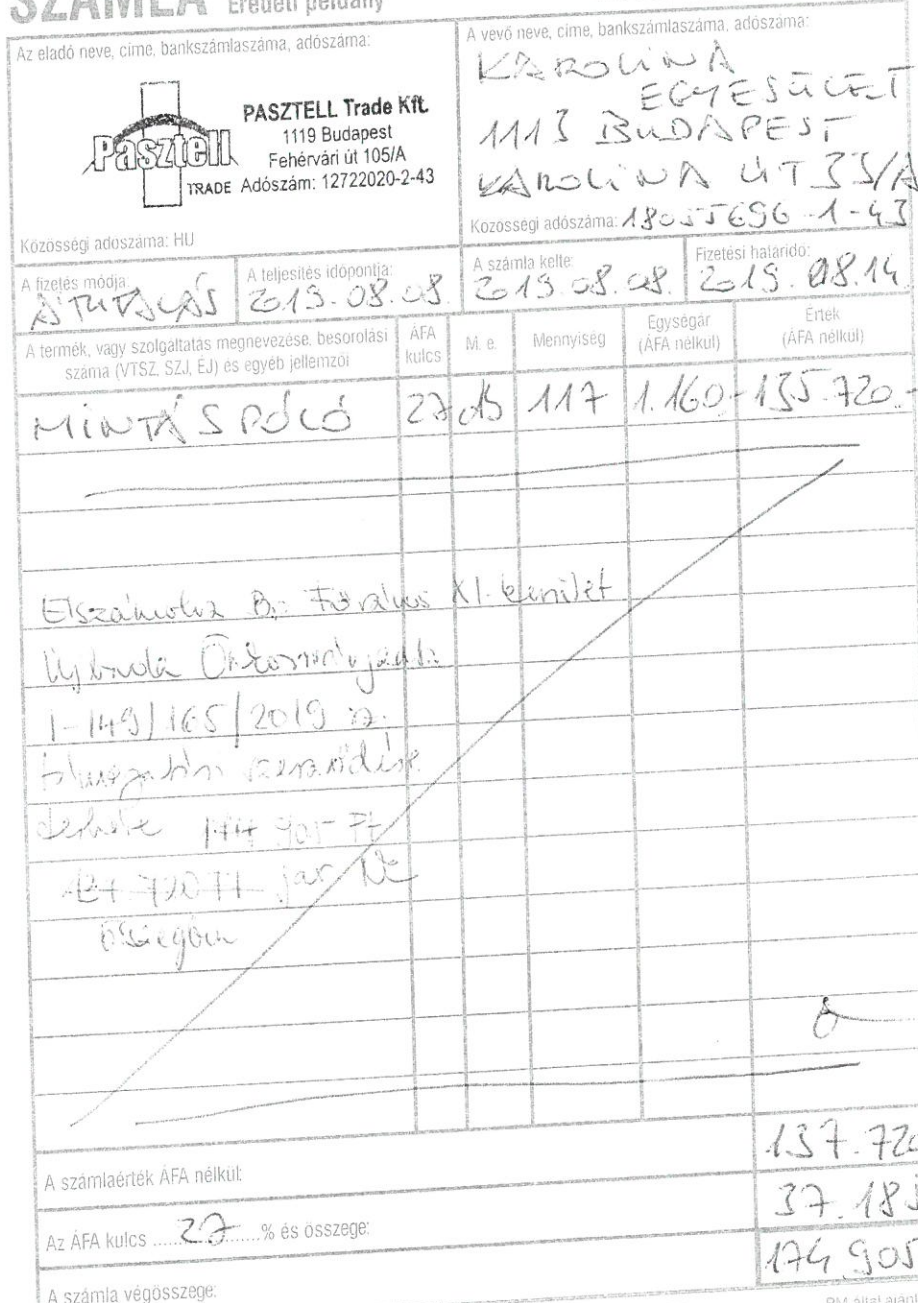 SZÁMLA Eredeti példány
Az eladó neve, címe, bankszámlaszáma, adószáma:
Pasztell
TRADE
PASZTELL Trade Kft.
1119 Budapest
Fehérvári út 105/A
Adószám: 12722020-2-43
Közösségi adószáma: HU
A vevő neve, címe, bankszámlaszáma, adószáma:
KAROLINA
EGYESÜLET
1113 BUDAPEST
KAROLINA ÚT
Közösségi adószáma: 18055696-1-43
A fizetés módja:
ÁTUTALÁS
A teljesítés időpontja:
2019.08.08.
A számla kelte:
2019.08.08.
Fizetési határidő:
2019.08.14
A termék, vagy szolgáltatás megnevezése, besorolási
száma (VTSZ, SZJ, ÉJ) és egyéb jellemzői
ÁFA
kulcs
M. e.
Mennyiség
Egységár
(ÁFA nélkül)
Érték
(ÁFA nélkül)
MINTÁS PÓLÓ 27 db 117 1.160.- 135.720.-
Elszámolva Bp. Főváros XI. kerület
Újbuda Önkormányzata
I-149/165/2019 sz.
támogatási szerződés
terhére 174 905 Ft
összegben
A számlaérték ÁFA nélkül: 137.720
Az ÁFA kulcs 27 % és összege: 37.185
A számla végösszege: 174 905